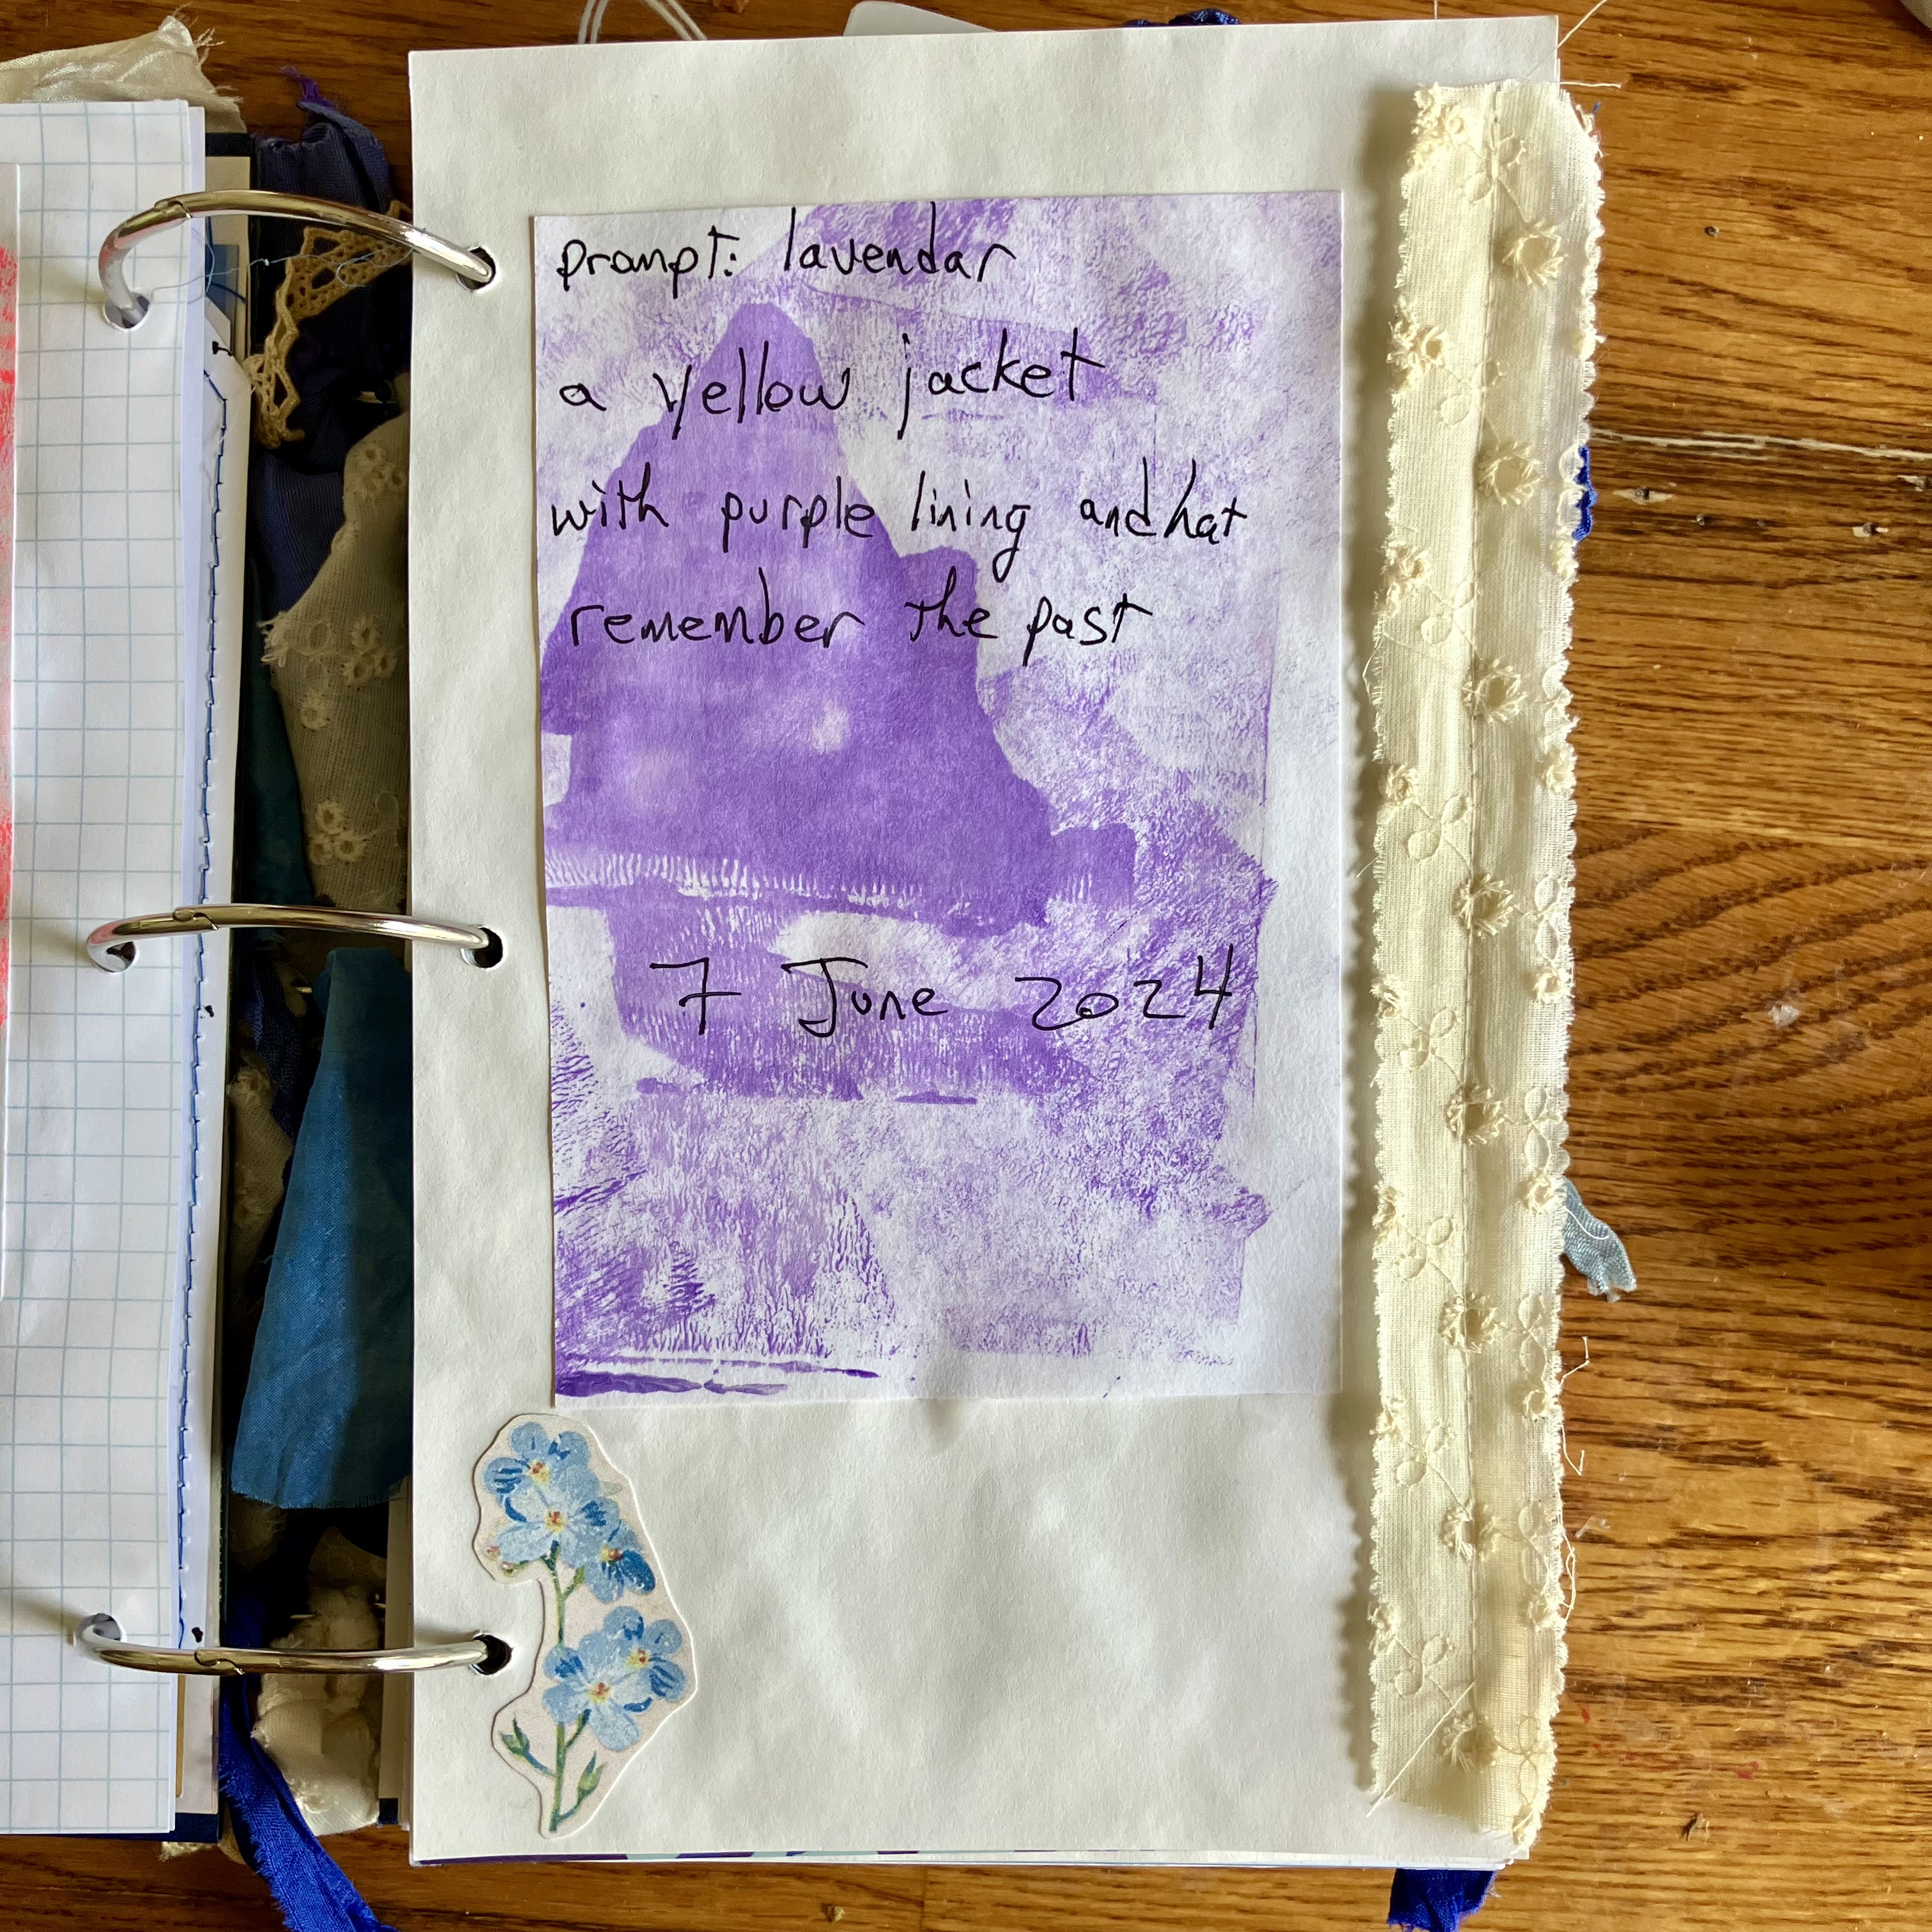 prompt: lavendar
a yellow jacket
with purple lining and hat
remember the past
7 June 2024